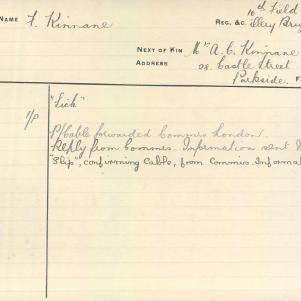 10th Field
NAME F. Kinnane REG. &C. Brig
NEXT OF KIN Mr A. C. Kinnane
ADDRESS 28. Castle Street
Parkside.
"Sick"
forwarded Commis London.
Reply from Commis. Information sent
"Slip", confirming Cable, from Commis. Informat